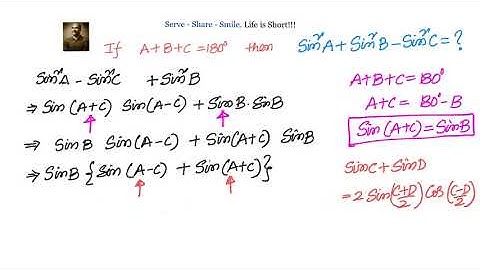 Serve - Share - Smile, Life is Short!!!
If A+B+C=180° then Sin²A + Sin²B - Sin²C = ?
Sin²A - Sin²C + Sin²B
⇒ Sin(A+C) Sin(A-C) + SinB·SinB
⇒ SinB Sin(A-C) + Sin(A+C) SinB
⇒ SinB {Sin(A-C) + Sin(A+C)}
A+B+C = 180°
A+C = 180°-B
Sin(A+C) = SinB
SinC + SinD
= 2 Sin(C+D/2) Cos(C-D/2)